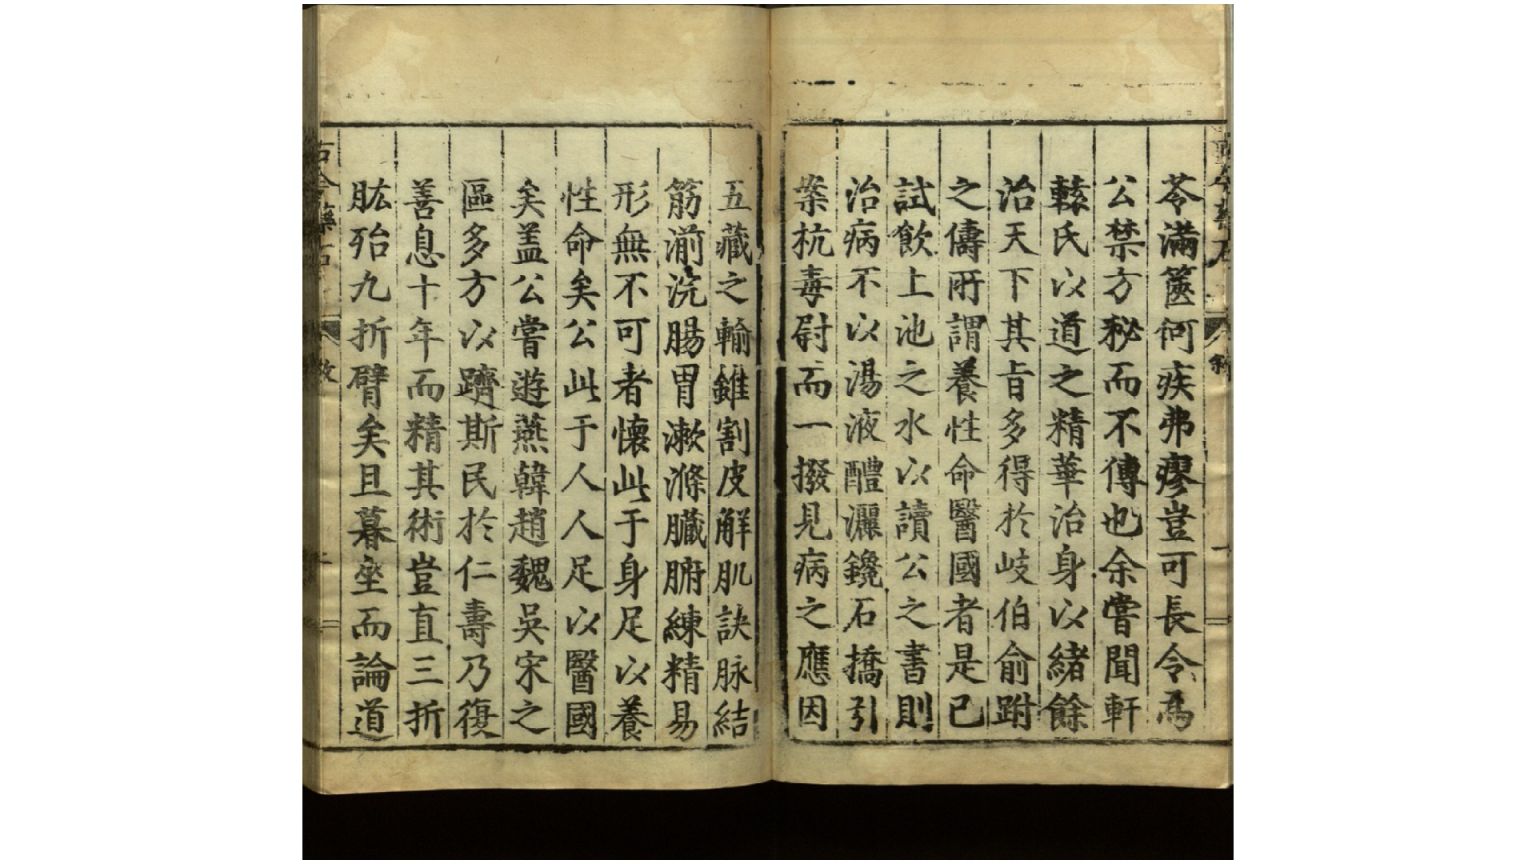 苓滿篋何疾弗瘳豈可長令爲
公禁方秘而不傳也余嘗聞軒
轅氏以道之精華治身以緒餘
治天下其旨多得於岐伯俞跗
之儔所謂養性命醫國者是已
試飲上池之水以讀公之書則
治病不以湯液醴灑鑱石撟引
案杬毒尉而一撥見病之應因
五藏之輸錐割皮解肌訣脉結
筋湔浣腸胃漱滌臓腑練精易
形無不可者懷此于身足以養
性命矣公此于人人足以醫國
矣盖公嘗遊燕韓趙魏吳宋之
區多方以躋斯民於仁壽乃復
善息十年而精其術豈直三折
肱殆九折臂矣且暮坐而論道